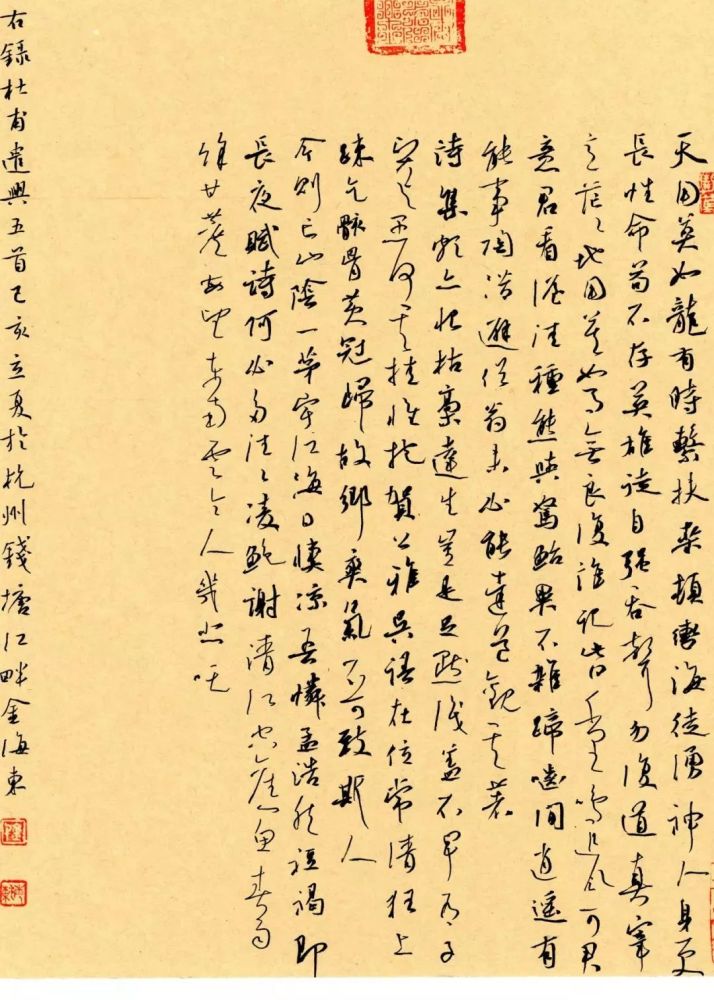 天用莫如龍有時繫扶桑頓轡海徒湧神人身更
長性命苟不存英雄徒自強吞聲勿復道真宰
意茫々地用莫如馬無良復誰記此日千里鳴追風可君
意君看渥洼種態與駑駘異不雜蹄嚙間逍遙有
能事陶潛避俗翁未必能達道觀其著
詩集頗亦恨枯槁達生豈是足默識蓋不早有子
賢與愚何其挂懷抱賀公雅吳語在位常清狂上
疎乞骸骨黃冠歸故鄉爽氣不可致斯人
今則亡山陰一茅宇江海日悽凉吾憐孟浩然裋褐即
長夜賦詩何必多往々凌鮑謝清江空舊魚春雨
餘甘蔗每望東南雲令人幾悲吒
右錄杜甫遣興五首己亥立夏於杭州錢塘江畔金海東